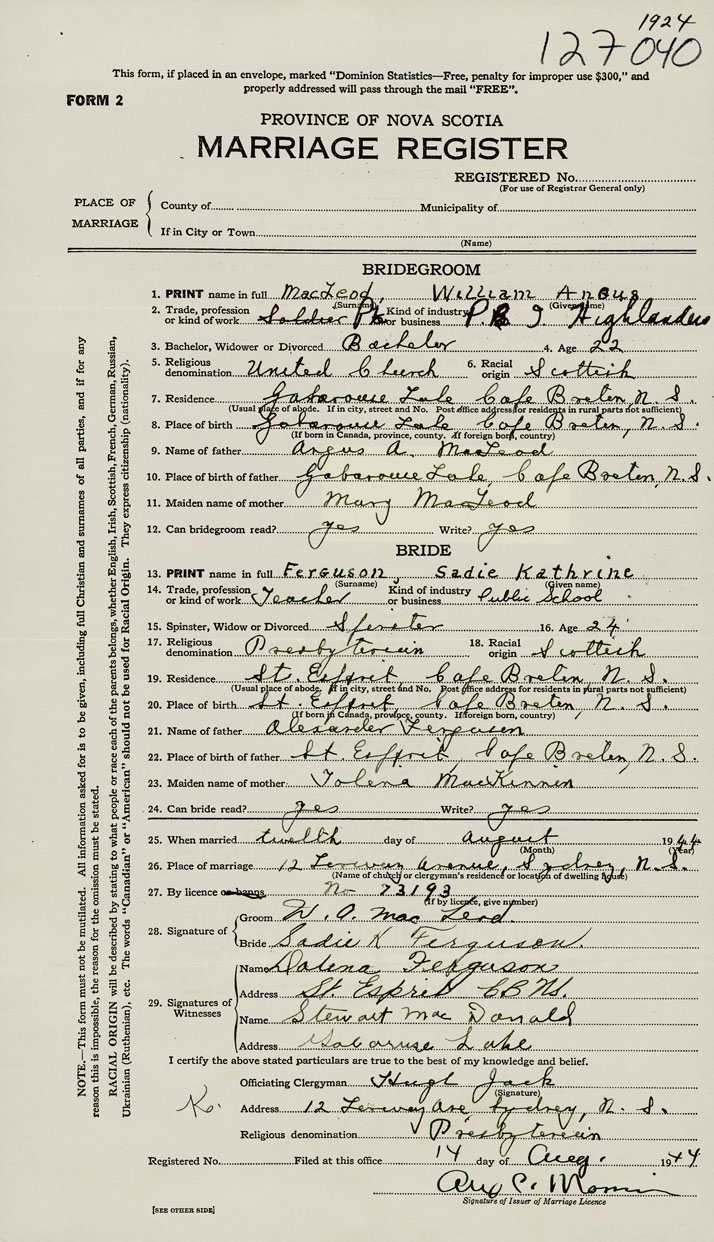 1924
127040
This form, if placed in an envelope, marked "Dominion Statistics—Free, penalty for improper use $300," and
properly addressed will pass through the mail "FREE".
FORM 2
PROVINCE OF NOVA SCOTIA
MARRIAGE REGISTER
REGISTERED No.
(For use of Registrar General only)
PLACE OF MARRIAGE
County of
Municipality of
If in City or Town
(Name)
BRIDEGROOM
1. PRINT name in full MacLeod, William Angus
(Surname) (Given name)
2. Trade, profession or kind of work Soldier Pte Kind of industry or business P E I Highlanders
3. Bachelor, Widower or Divorced Bachelor 4. Age 22
5. Religious denomination United Church 6. Racial origin Scottish
7. Residence Gabarouse Lake Cape Breton, N. S.
(Usual place of abode. If in city, street and No. Post office address for residents in rural parts not sufficient)
8. Place of birth Gabarouse Lake Cape Breton, N. S.
(If born in Canada, province, county. If foreign born, country)
9. Name of father Angus A. MacLeod
10. Place of birth of father Gabarouse Lake, Cape Breton, N. S.
11. Maiden name of mother Mary MacLeod
12. Can bridegroom read? yes Write? yes
BRIDE
13. PRINT name in full Ferguson, Sadie Kathrine
(Surname) (Given name)
14. Trade, profession or kind of work Teacher Kind of industry or business Public School
15. Spinster, Widow or Divorced Spinster 16. Age 24
17. Religious denomination Presbyterein 18. Racial origin Scottish
19. Residence St. Esprit, Cape Breton, N. S.
(Usual place of abode, if in city, street and No. Post office address for residents in rural parts not sufficient)
20. Place of birth St. Esprit, Cape Breton, N. S.
(If born in Canada, province, county. If foreign born, country)
21. Name of father Alexander Ferguson
22. Place of birth of father St. Esprit, Cape Breton, N. S.
23. Maiden name of mother Tolena MacKinnin
24. Can bride read? yes Write? yes
25. When married twelth day of August 1944
(Month) (Year)
26. Place of marriage 12 Avenue, Sydney, N. S.
(Name of church or clergyman's residence or location of dwelling house)
27. By licence or banns No 73193
(If by licence, give number)
28. Signature of
Groom W. A. MacLeod.
Bride Sadie K Ferguson.
29. Signatures of Witnesses
Name Dolena Ferguson
Address St. Esprit CB NS.
Name Stewart MacDonald
Address Gabaruse Lake
I certify the above stated particulars are true to the best of my knowledge and belief.
Officiating Clergyman Hugh Jack
(Signature)
K.
Address 12 Ave Sydney, N. S.
Religious denomination Presbyterein
Registered No. Filed at this office 14 day of Aug. 1944
Signature of Issuer of Marriage Licence
[SEE OTHER SIDE]
NOTE.—This form must not be mutilated. All information asked for is to be given, including full Christian and surnames of all parties, and if for any
reason this is impossible, the reason for the omission must be stated.
RACIAL ORIGIN will be described by stating to what people or race each of the parents belongs, whether English, Irish, Scottish, French, German, Russian,
Ukrainian (Ruthenian), etc. The words "Canadian" or "American" should not be used for Racial Origin. They express citizenship (nationality).